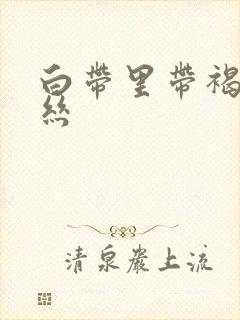 白帶里帶褐
絲
清泉巖上流